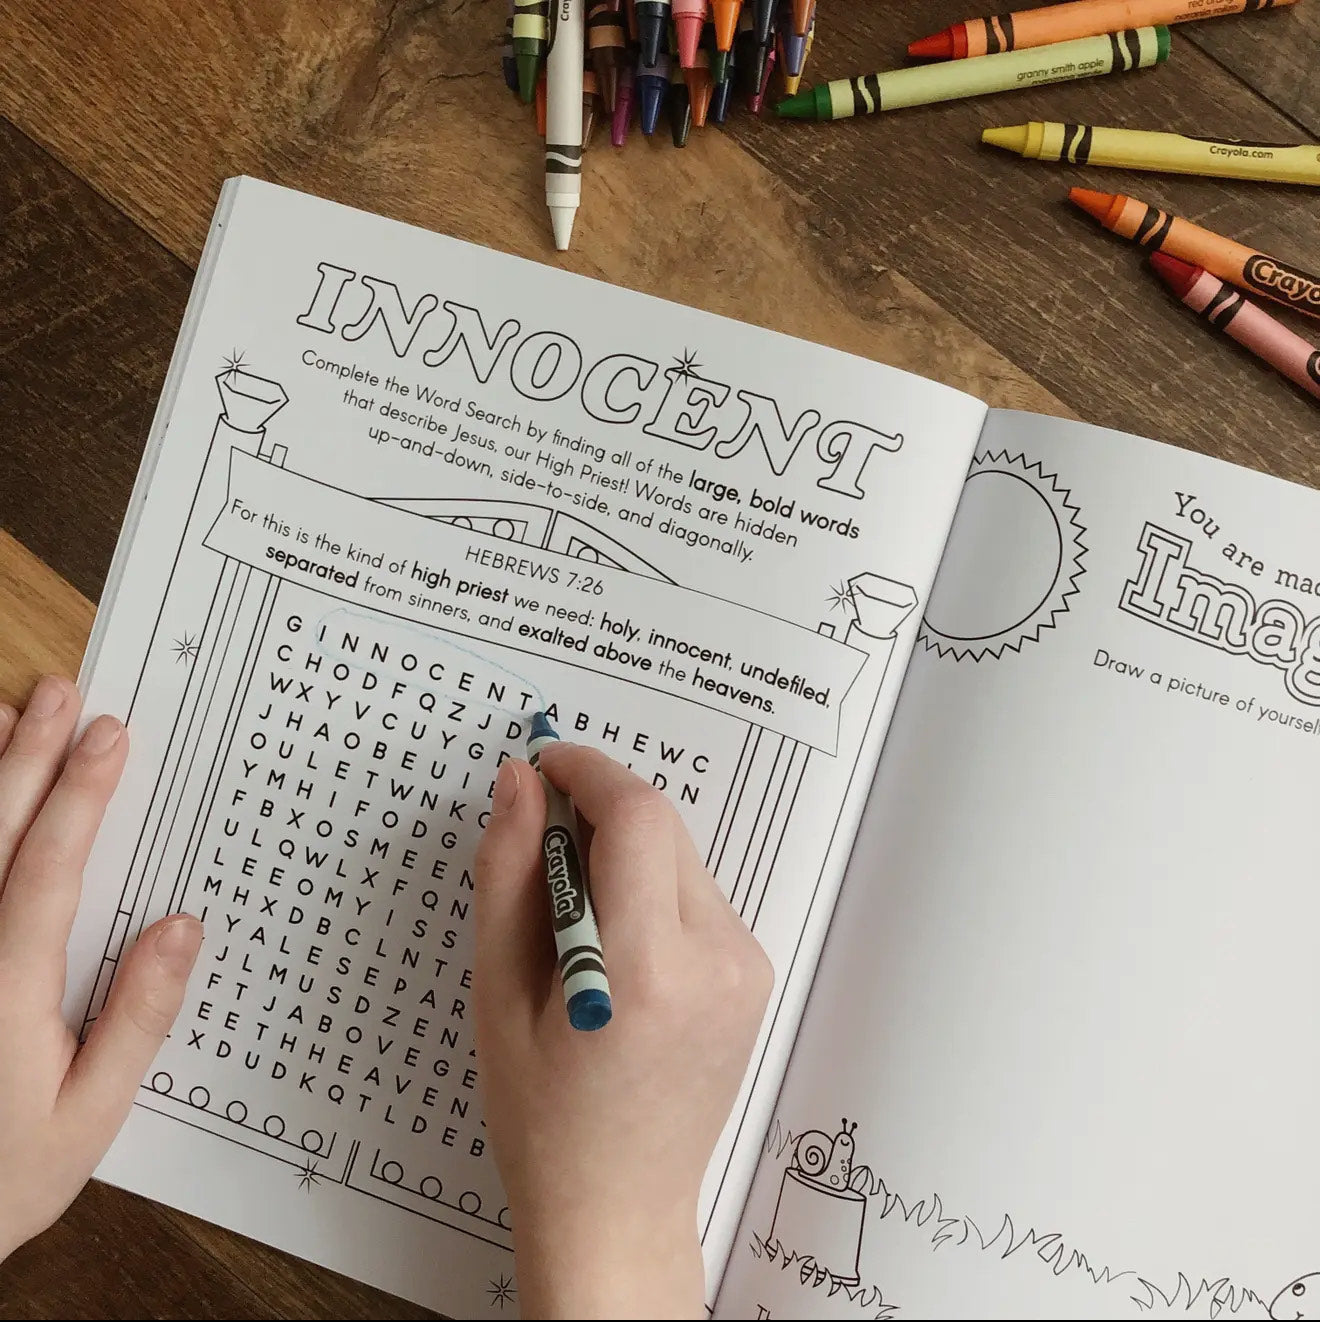 INNOCENT
Complete the Word Search by finding all of the large, bold words
that describe Jesus, our High Priest! Words are hidden
up-and-down, side-to-side, and diagonally.
HEBREWS 7:26
For this is the kind of high priest we need: holy, innocent, undefiled,
separated from sinners, and exalted above the heavens.
G I N N O C E N T A B H E W C
C H O D F Q Z J D D N
W X Y V C U Y G
J H A O B E U I
O U L E T W N K
Y M H I F O D G
F B X O S M E E N
U L Q W L X F Q N
L E E O M Y I S S
M H X D B C L N T E
I Y A L E S E P A R
J L M U S D Z E N
F T J A B O V E G E
E E T H H E A V E N
X D U D K Q T L D E B
You are
Draw a picture of
Crayola
red orange
granny smith apple
Crayola.com